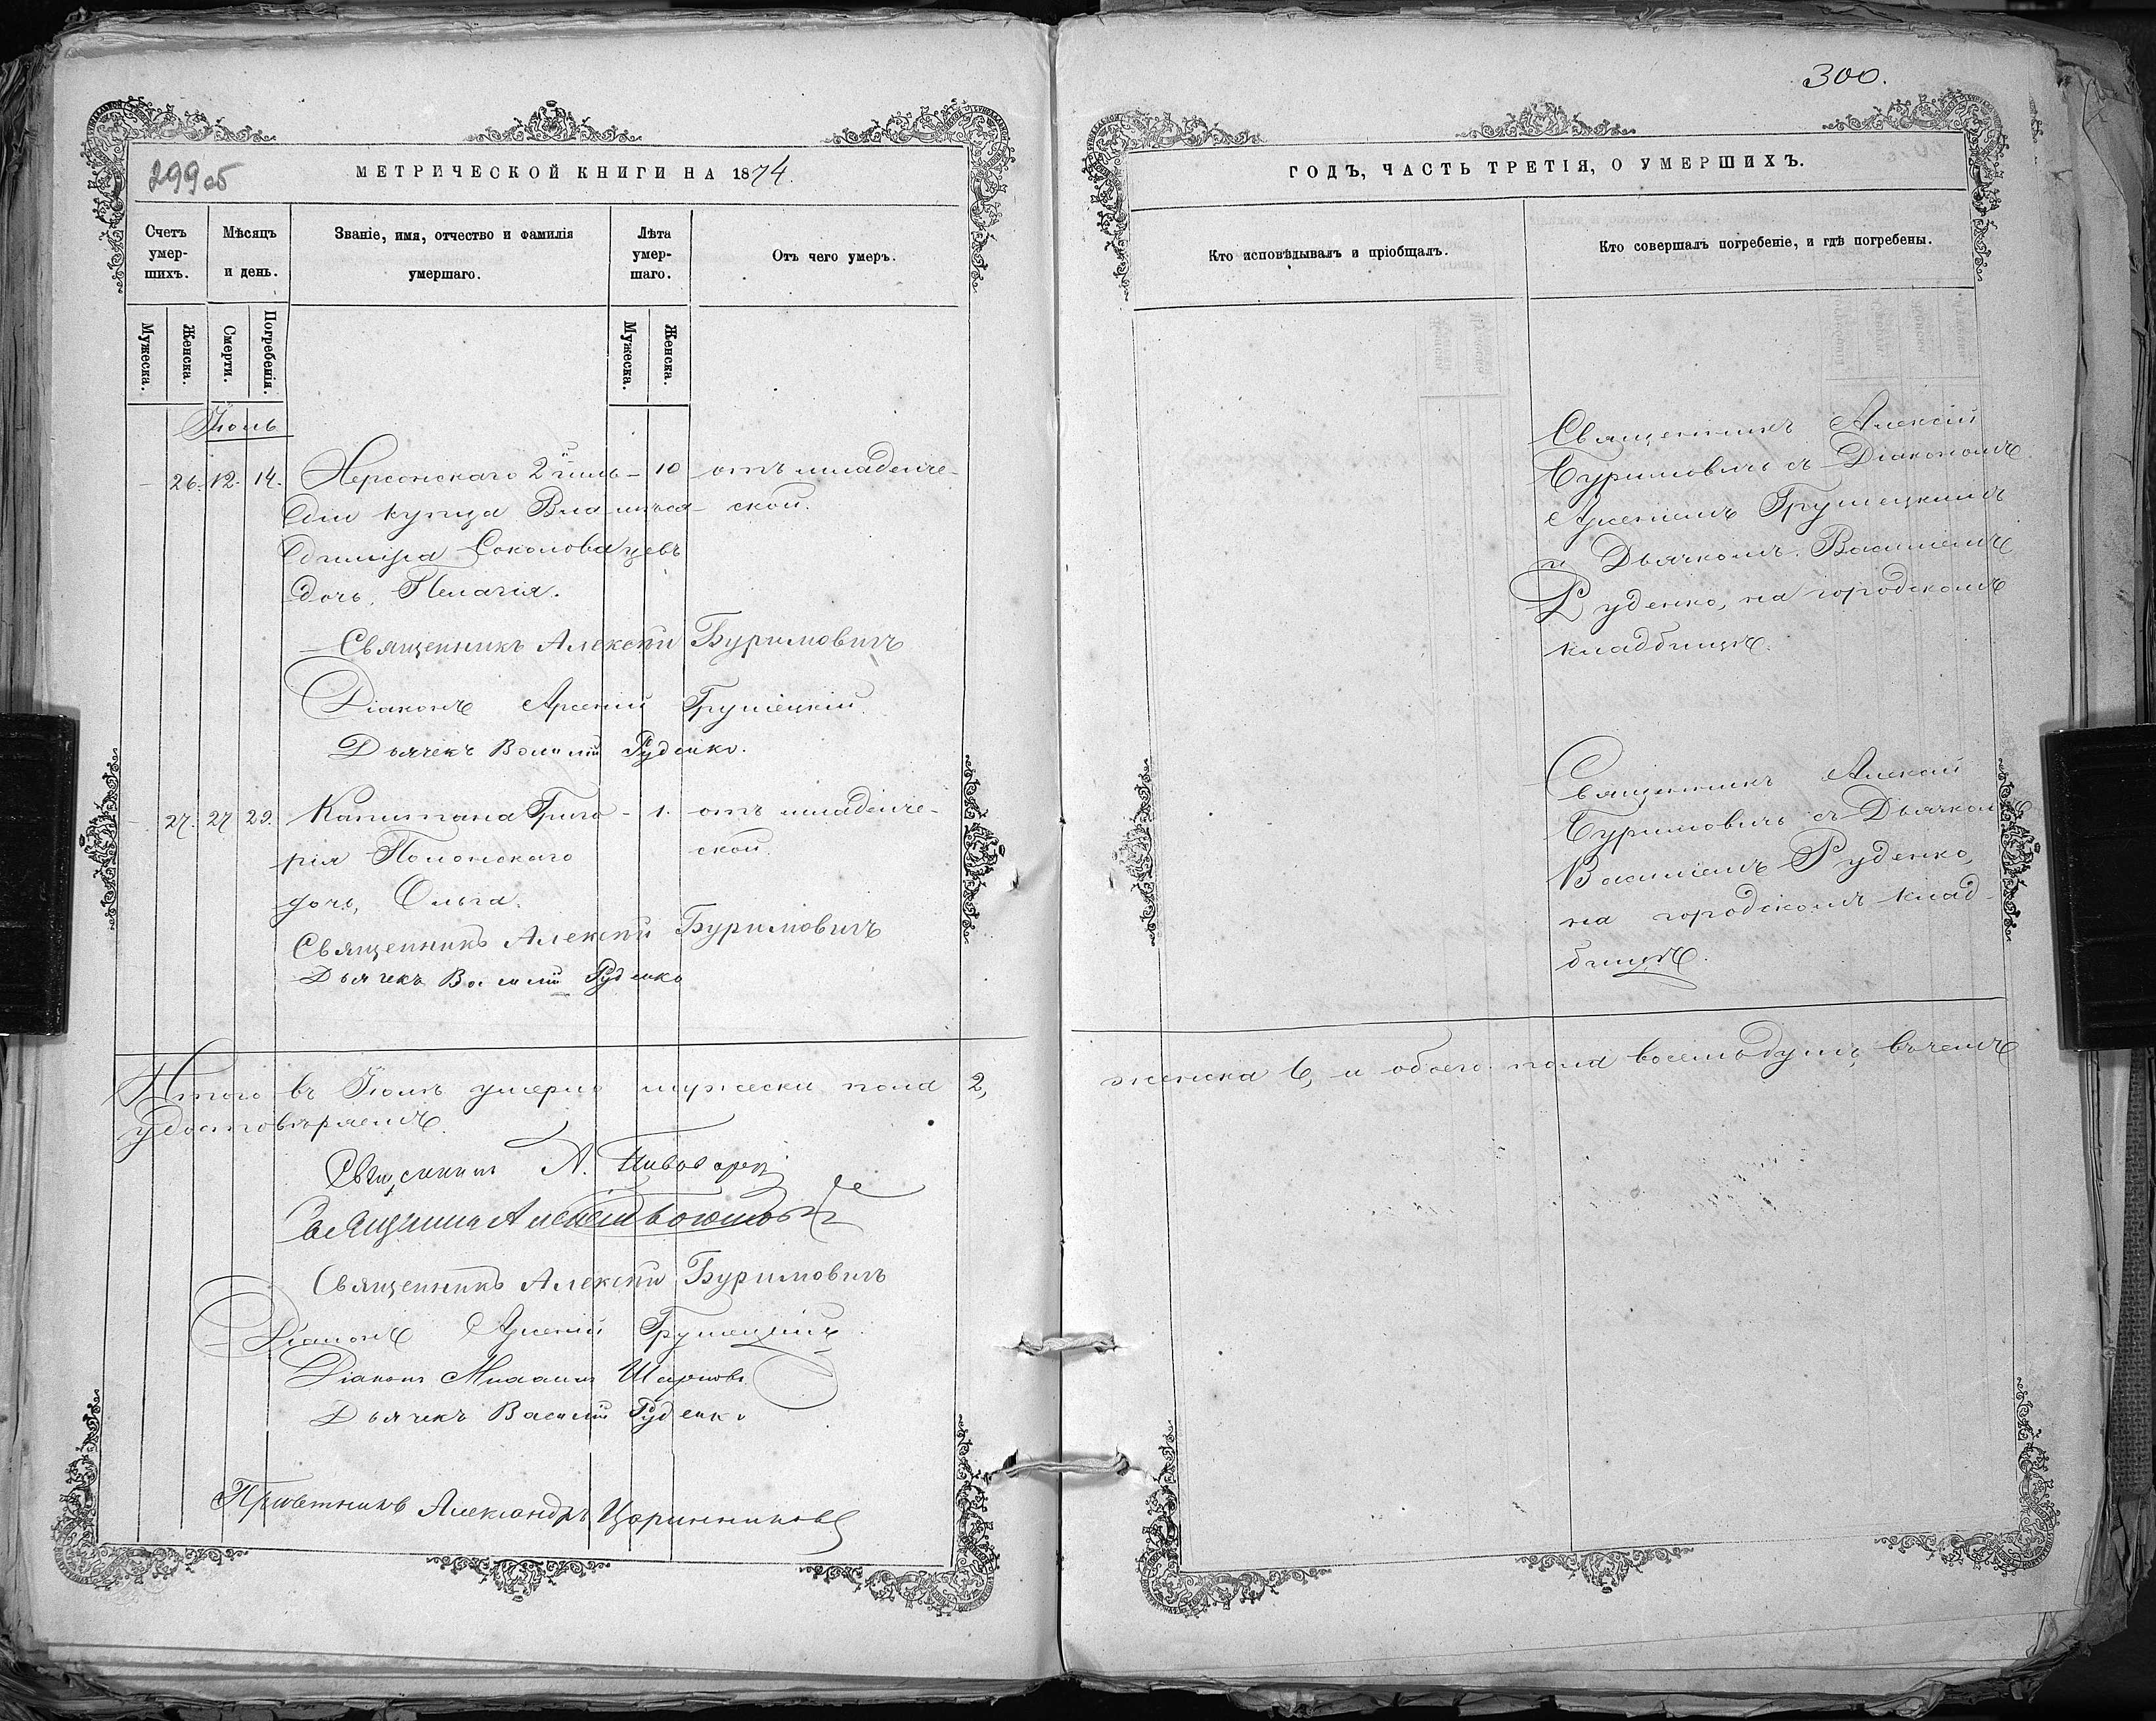 299об
МЕТРИЧЕСКОЙ КНИГИ НА 1874.
Счетъ умер-шихъ.
Мѣсяцъ и день.
Званіе, имя, отчество и фамилія умершаго.
Лѣта умер-шаго.
Отъ чего умеръ.
Мужеска.
Женска.
Смерти.
Погребенія.
Мужеска.
Женска.
Іюль
26. 12. 14. Херсонскаго 2й гиль- 10 отъ младенче-
діи купца Вла- мѣся- ской.
диміра Соколова цевъ
дочь, Пелагія.
Священникъ Алексѣй Буримовичъ
Діаконъ Арсеній Грушецкій.
Дьячекъ Василій Руденко.
27. 27 29. Капитана Григо- 1. отъ младенче-
рія Полонскаго ской.
дочь, Ольга.
Священникъ Алексѣй Буримовичъ
Дьячекъ Василій Руденко
Итого въ Іюлѣ умерло мужеска пола 2,
удостовѣряемъ.
Священникъ А.
Священникъ
Священникъ Алексѣй Буримовичъ
Діаконъ Арсеній Грушецкій
Діаконъ Михаилъ
Дьячекъ Василій Руденко
Александръ Царинниковъ
300.
ГОДЪ, ЧАСТЬ ТРЕТІЯ, О УМЕРШИХЪ.
Кто исповѣдывалъ и пріобщалъ.
Кто совершалъ погребеніе, и гдѣ погребены.
Священникъ Алексій
Буримовичъ съ Діакономъ
Арсеніемъ Грушецкимъ
и Дьячкомъ Василіемъ
Руденко, на городскомъ
кладбищѣ.
Священникъ Алексій
Буримовичъ съ Дьячкомъ
Василіемъ Руденко,
на городскомъ клад-
бищѣ.
женска 6, и обоего пола восемь душъ, въ чемъ